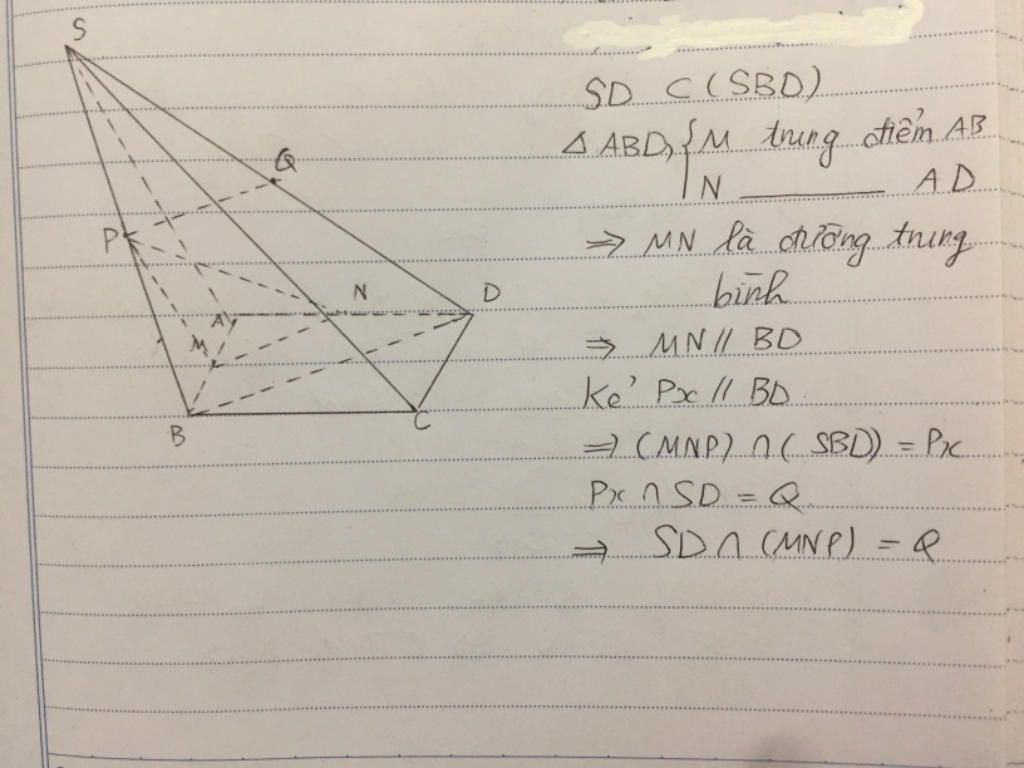 S
Q
P
N
D
A
M
B
C
SD ⊂ (SBD)
△ ABD, { M trung điểm AB
N ———— AD
⇒ MN là đường trung
bình
⇒ MN // BD
Kẻ Px // BD
⇒ (MNP) ∩ ( SBD) = Px
Px ∩ SD = Q
⇒ SD ∩ (MNP) = Q